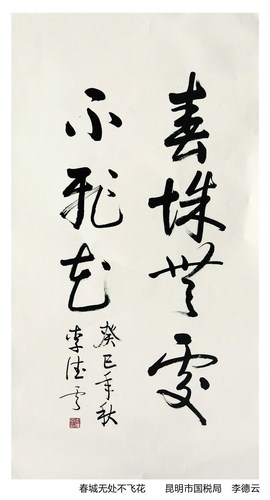 春城無處
不飛花
癸巳年秋
李德雲
春城无处不飞花 昆明市国税局 李德云